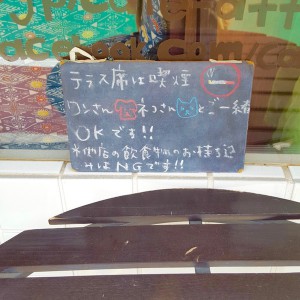 テラス席は喫煙
ワンさん ネコさん とご一緒
OKです!!
※他店の飲食物のお持ち込
みはNGです!!